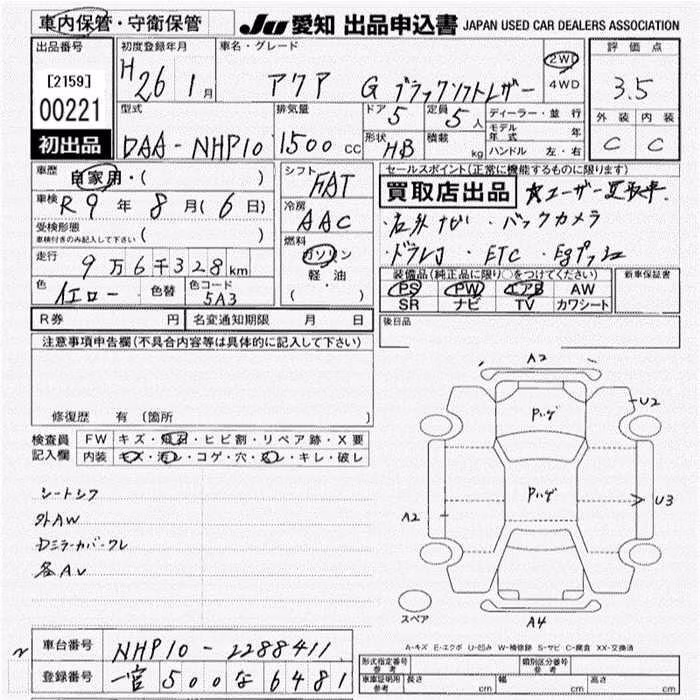 車内保管・守衛保管 JU 愛知 出品申込書 JAPAN USED CAR DEALERS ASSOCIATION
出品番号 初度登録年月 車名・グレード 評価点
[2159] 00221 H26 1月 アクア G ブラックソフトレザー 2WD 4WD 3.5
初出品
型式 排気量 ドア 5 定員 5人 ディーラー・並行 外装 内装
DAA-NHP10 1500cc 形状 HB 積載 kg モデル年式 年 C C
ハンドル 左・右
車歴 自家用・( ) シフト FAT セールスポイント(正常に機能するものに限ります)
車検 R9年8月(6日) 冷房 AAC 買取店出品 ★ユーザー買取車
受検形態 車検付きのみ記入して下さい ( ) ・社外ナビ ・バックカメラ
走行 9万6千328km 燃料 ガソリン 軽・油 ( ・ ) ・ドラレコ ・ETC ・Egプッシュ
色 イエロー 色替 色コード 5A3 装備品(純正品に限り○をつけてください) 新車保証書
PS PW エアB AW
SR ナビ TV カワシート
R券 円 名変通知期限 月 日 後日品
注意事項申告欄(不具合内容等は具体的に記入して下さい)
修復歴 有 〔箇所 〕
検査員記入欄 FW キズ・飛石・ヒビ割・リペア跡・X要
内装 キズ・汚レ・コゲ・穴・スレ・キレ・破レ
シートシワ
外AW
Dミラーカバーワレ
各AU
A2
U2
Pハゲ
Pハゲ
A2
U3
A4
スペア
A-キズ E-エクボ U-凹み W-補修跡 S-サビ C-腐食 XX-交換済
車台番号 NHP10-2288411
登録番号 一宮 500 な 6481
形式指定番号 参考 類別区分番号 参考
車庫証明用 参考 長さ cm 幅 cm 高さ cm